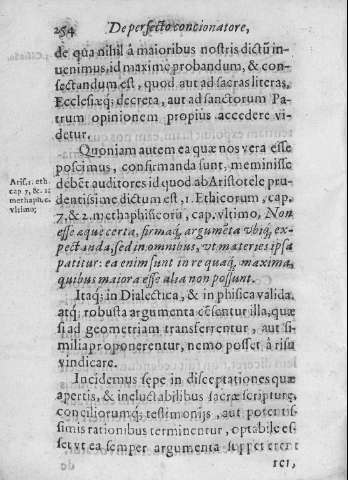 254 De perfecto concionatore,
de qua nihil â maioribus nostris dictũ in-
uenimus, id maximè probandum, & con-
sectandum est, quod aut ad sacras literas,
Ecclesiæq; decreta, aut ad sanctorum Pa-
trum opinionem propius accedere vi-
detur.
Quoniam autem ea quæ nos vera esse
poscimus, confirmanda sunt, meminisse
debẽt auditores id quod ab Aristotele pru-
dentissime dictum est, 1. Ethicorum, cap.
Aris. 1. eth.
cap. 7, & 2:
methaph. c.
vltimo;
7, & 2. methaphisicorũ, cap. vltimo, Non
esse æque certa, firmaq́, argumẽta vbiq́, ex-
pectanda, sed in omnibus, vt materies ipsa
patitur: ea enim sunt in re quaq́, maxima,
quibus maiora esse alia non possunt.
Itaq; in Dialectica, & in phisica valida,
atq; robusta argumenta cẽsentur illa, quæ
si ad geometriam transferrentur, aut si-
milia proponerentur, nemo posset â risu
vindicare.
Incidemus sepe in disceptationes quæ
apertis, & ineluctabilibus sacræ scripturę,
conciliorumq; testimonijs, aut potẽtis-
simis rationibus terminentur, optabile es-
set vt ea semper argumenta suppeterent
rei,